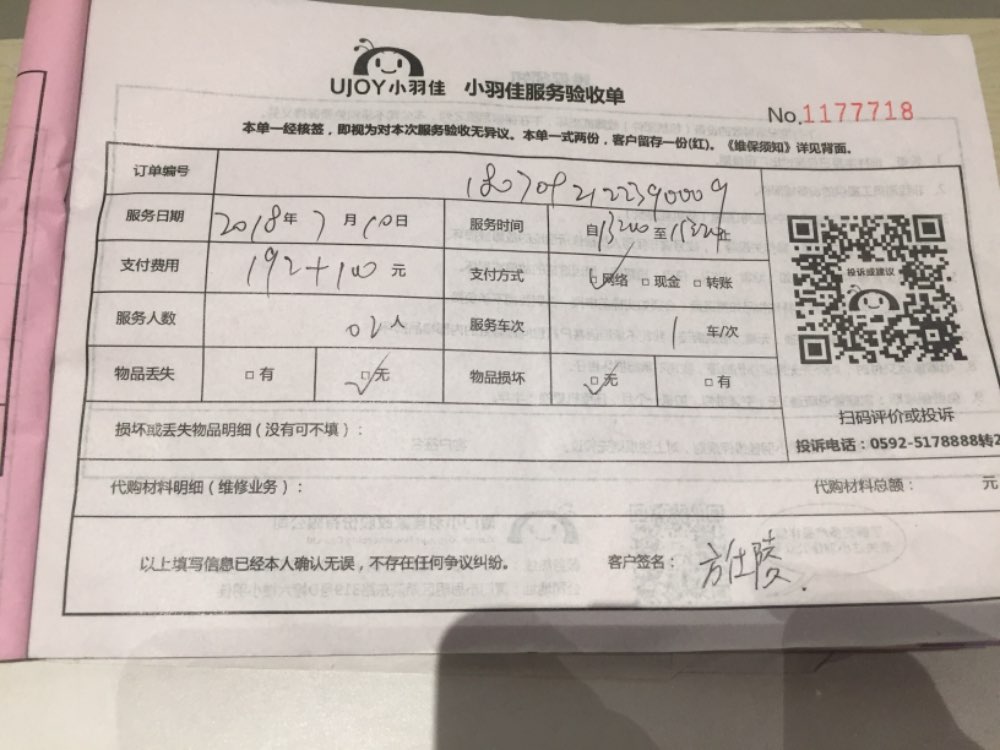 UJOY小羽佳 小羽佳服务验收单
No.1177718
本单一经核签，即视为对本次服务验收无异议。本单一式两份，客户留存一份(红)。《维保须知》详见背面。
订单编号 1807092122390009
服务日期 2018年7月10日 服务时间 自 至 止
支付费用 192+100元 支付方式 网络 □现金 □转账
服务人数 02人 服务车次 1 车/次
物品丢失 □有 ☑无 物品损坏 ☑无 □有
投诉或建议
扫码评价或投诉
投诉电话：0592-5178888转2
损坏或丢失物品明细（没有可不填）：
代购材料明细（维修业务）： 代购材料总额： 元
以上填写信息已经本人确认无误，不存在任何争议纠纷。 客户签名：方仕陵